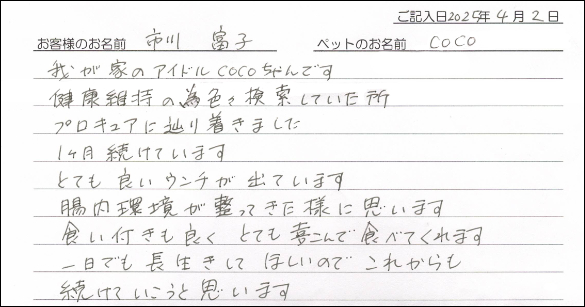 ご記入日2025年4月2日
お客様のお名前 市川 富子 ペットのお名前 COCO
我が家のアイドルCOCOちゃんです
健康維持の為色々検索していた所
プロキュアに辿り着きました
1ヶ月続けています
とても良いウンチが出ています
腸内環境が整ってきた様に思います
食い付きも良くとても喜こんで食べてくれます
一日でも長生きしてほしいのでこれからも
続けていこうと思います